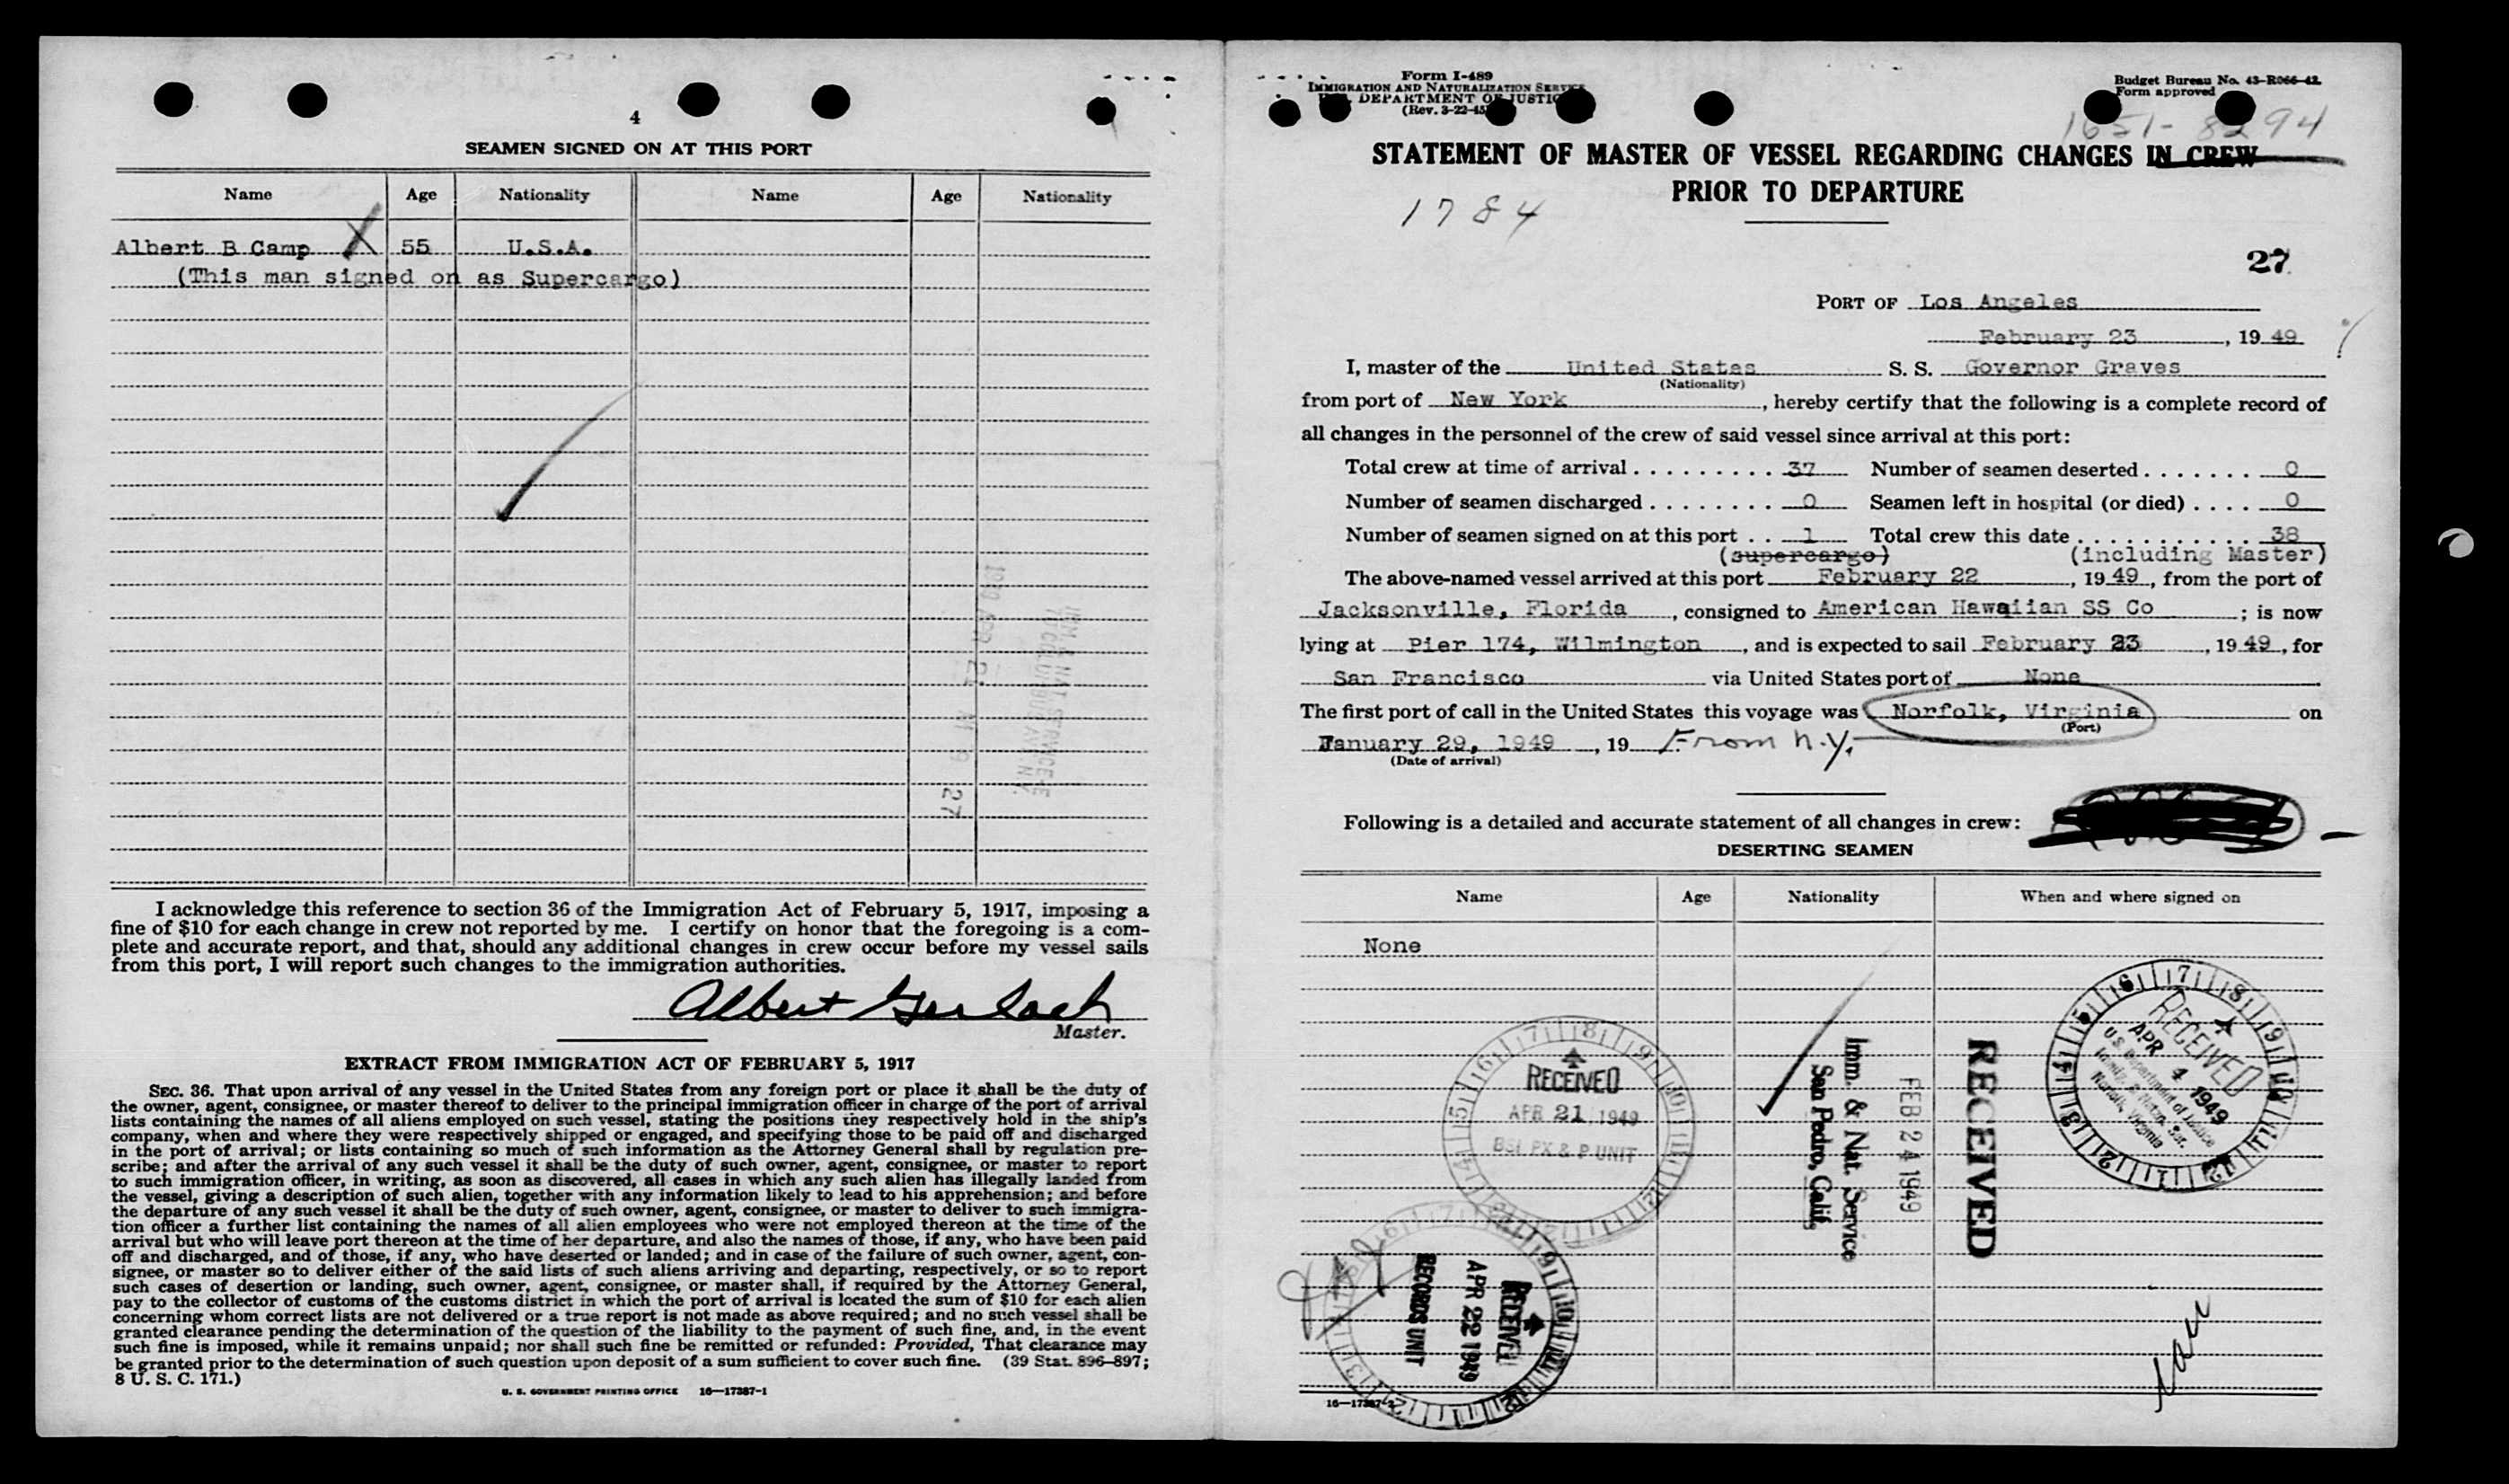 4
SEAMEN SIGNED ON AT THIS PORT
Name Age Nationality Name Age Nationality
Albert B Camp X 55 U.S.A.
(This man signed on as Supercargo)
27
I acknowledge this reference to section 36 of the Immigration Act of February 5, 1917, imposing a
fine of $10 for each change in crew not reported by me. I certify on honor that the foregoing is a com-
plete and accurate report, and that, should any additional changes in crew occur before my vessel sails
from this port, I will report such changes to the immigration authorities.
Albert Gerlach
Master.
EXTRACT FROM IMMIGRATION ACT OF FEBRUARY 5, 1917
SEC. 36. That upon arrival of any vessel in the United States from any foreign port or place it shall be the duty of
the owner, agent, consignee, or master thereof to deliver to the principal immigration officer in charge of the port of arrival
lists containing the names of all aliens employed on such vessel, stating the positions they respectively hold in the ship's
company, when and where they were respectively shipped or engaged, and specifying those to be paid off and discharged
in the port of arrival; or lists containing so much of such information as the Attorney General shall by regulation pre-
scribe; and after the arrival of any such vessel it shall be the duty of such owner, agent, consignee, or master to report
to such immigration officer, in writing, as soon as discovered, all cases in which any such alien has illegally landed from
the vessel, giving a description of such alien, together with any information likely to lead to his apprehension; and before
the departure of any such vessel it shall be the duty of such owner, agent, consignee, or master to deliver to such immigra-
tion officer a further list containing the names of all alien employees who were not employed thereon at the time of the
arrival but who will leave port thereon at the time of her departure, and also the names of those, if any, who have been paid
off and discharged, and of those, if any, who have deserted or landed; and in case of the failure of such owner, agent, con-
signee, or master so to deliver either of the said lists of such aliens arriving and departing, respectively, or so to report
such cases of desertion or landing, such owner, agent, consignee, or master shall, if required by the Attorney General,
pay to the collector of customs of the customs district in which the port of arrival is located the sum of $10 for each alien
concerning whom correct lists are not delivered or a true report is not made as above required; and no such vessel shall be
granted clearance pending the determination of the question of the liability to the payment of such fine, and, in the event
such fine is imposed, while it remains unpaid; nor shall such fine be remitted or refunded: Provided, That clearance may
be granted prior to the determination of such question upon deposit of a sum sufficient to cover such fine. (39 Stat. 896–897;
8 U. S. C. 171.)
U. S. GOVERNMENT PRINTING OFFICE 16—17387-1
Form I-489
IMMIGRATION AND NATURALIZATION SERVICE
DEPARTMENT OF JUSTICE
(Rev. 3-22-45)
Budget Bureau No. 43-R066-42.
Form approved
1651- 8294
STATEMENT OF MASTER OF VESSEL REGARDING CHANGES IN CREW
PRIOR TO DEPARTURE
1784
27
PORT OF Los Angeles
February 23, 1949
I, master of the United States S. S. Governor Graves
(Nationality)
from port of New York, hereby certify that the following is a complete record of
all changes in the personnel of the crew of said vessel since arrival at this port:
Total crew at time of arrival . . . . . . . . . 37 Number of seamen deserted . . . . . . . 0
Number of seamen discharged . . . . . . . . 0 Seamen left in hospital (or died) . . . . 0
Number of seamen signed on at this port . . 1 Total crew this date . . . . . . . . . . . 38
(supercargo) (including Master)
The above-named vessel arrived at this port February 22, 1949, from the port of
Jacksonville, Florida, consigned to American Hawaiian SS Co; is now
lying at Pier 174, Wilmington, and is expected to sail February 23, 1949, for
San Francisco via United States port of None.
The first port of call in the United States this voyage was Norfolk, Virginia on
(Port)
January 29, 1949, 19 From N.Y.
(Date of arrival)
Following is a detailed and accurate statement of all changes in crew:
DESERTING SEAMEN
Name Age Nationality When and where signed on
None
RECEIVED
APR 4 1949
U.S. Department of Justice
Immig. & Natzn. Ser.
Norfolk, Virginia
RECEIVED
FEB 24 1949
Imm. & Nat. Service
San Pedro, Calif.
RECEIVED
APR 21 1949
BSI PX & P UNIT
RECEIVED
APR 22 1949
RECORDS UNIT
16—17387-1